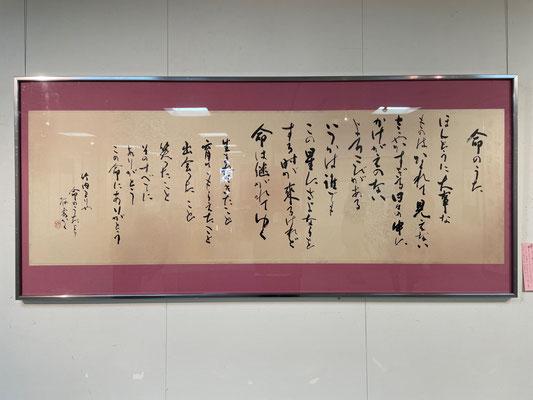 命のうた
ほんとうに大事な
ものはかくれて見えない
ささやかすぎる日々の中に
かけがえのない
よろこびがある
いつかは誰でも
この星にさよならを
する時が来るけれど
命は継がれてゆく
生まれてきたこと
育ててもらえたこと
出会ったこと
笑ったこと
そのすべてに
ありがとう
この命にありがとう
竹内まりや
命のうたより